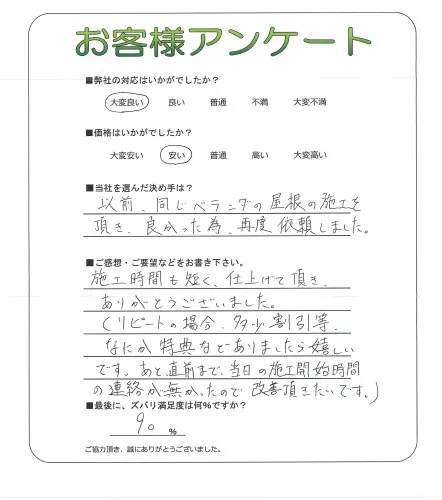 お客様アンケート
■弊社の対応はいかがでしたか？
大変良い 良い 普通 不満 大変不満
■価格はいかがでしたか？
大変安い 安い 普通 高い 大変高い
■当社を選んだ決め手は？
以前、同じベランダの屋根の施工を
頂き、良かった為、再度依頼しました。
■ご感想・ご要望などをお書き下さい。
施工時間も短く、仕上げて頂き、
ありがとうございました。
(リピートの場合、多少割引等、
なにか特典などありましたら嬉しい
です。あと、直前まで、当日の施工開始時間
の連絡が無かったので改善頂きたいです。)
■最後に、ズバリ満足度は何％ですか？
90 %
ご協力頂き、誠にありがとうございました。